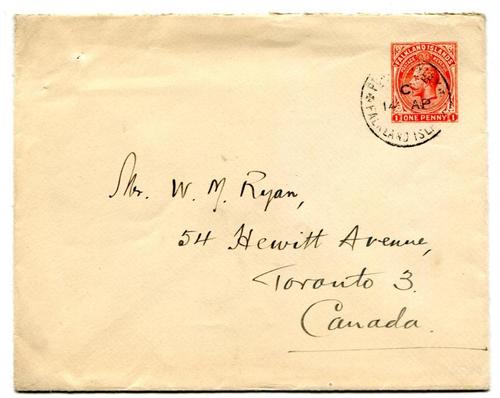 FALKLAND ISLANDS
ONE PENNY
1 1
C
14 AP
FALKLAND ISL
Mr. W. M. Ryan,
54 Hewitt Avenue,
Toronto 3.
Canada.